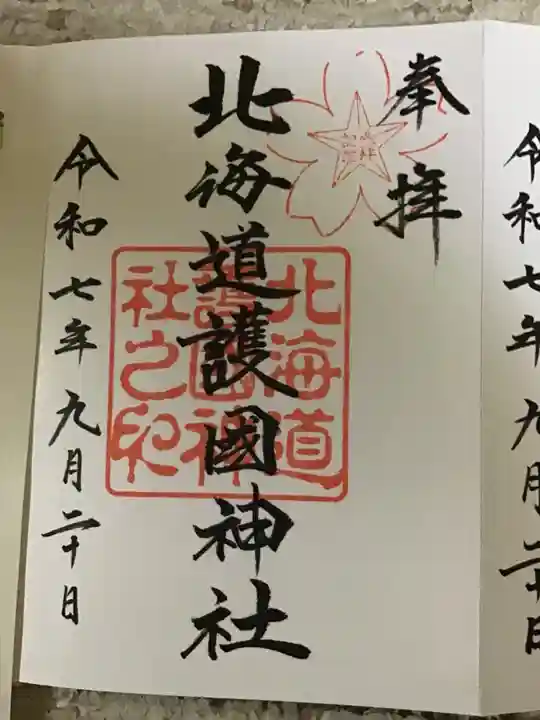 令和七年九月二十日
奉拝
北海道護國神社
北海道
護國神
社之印
令和七年九月二十日